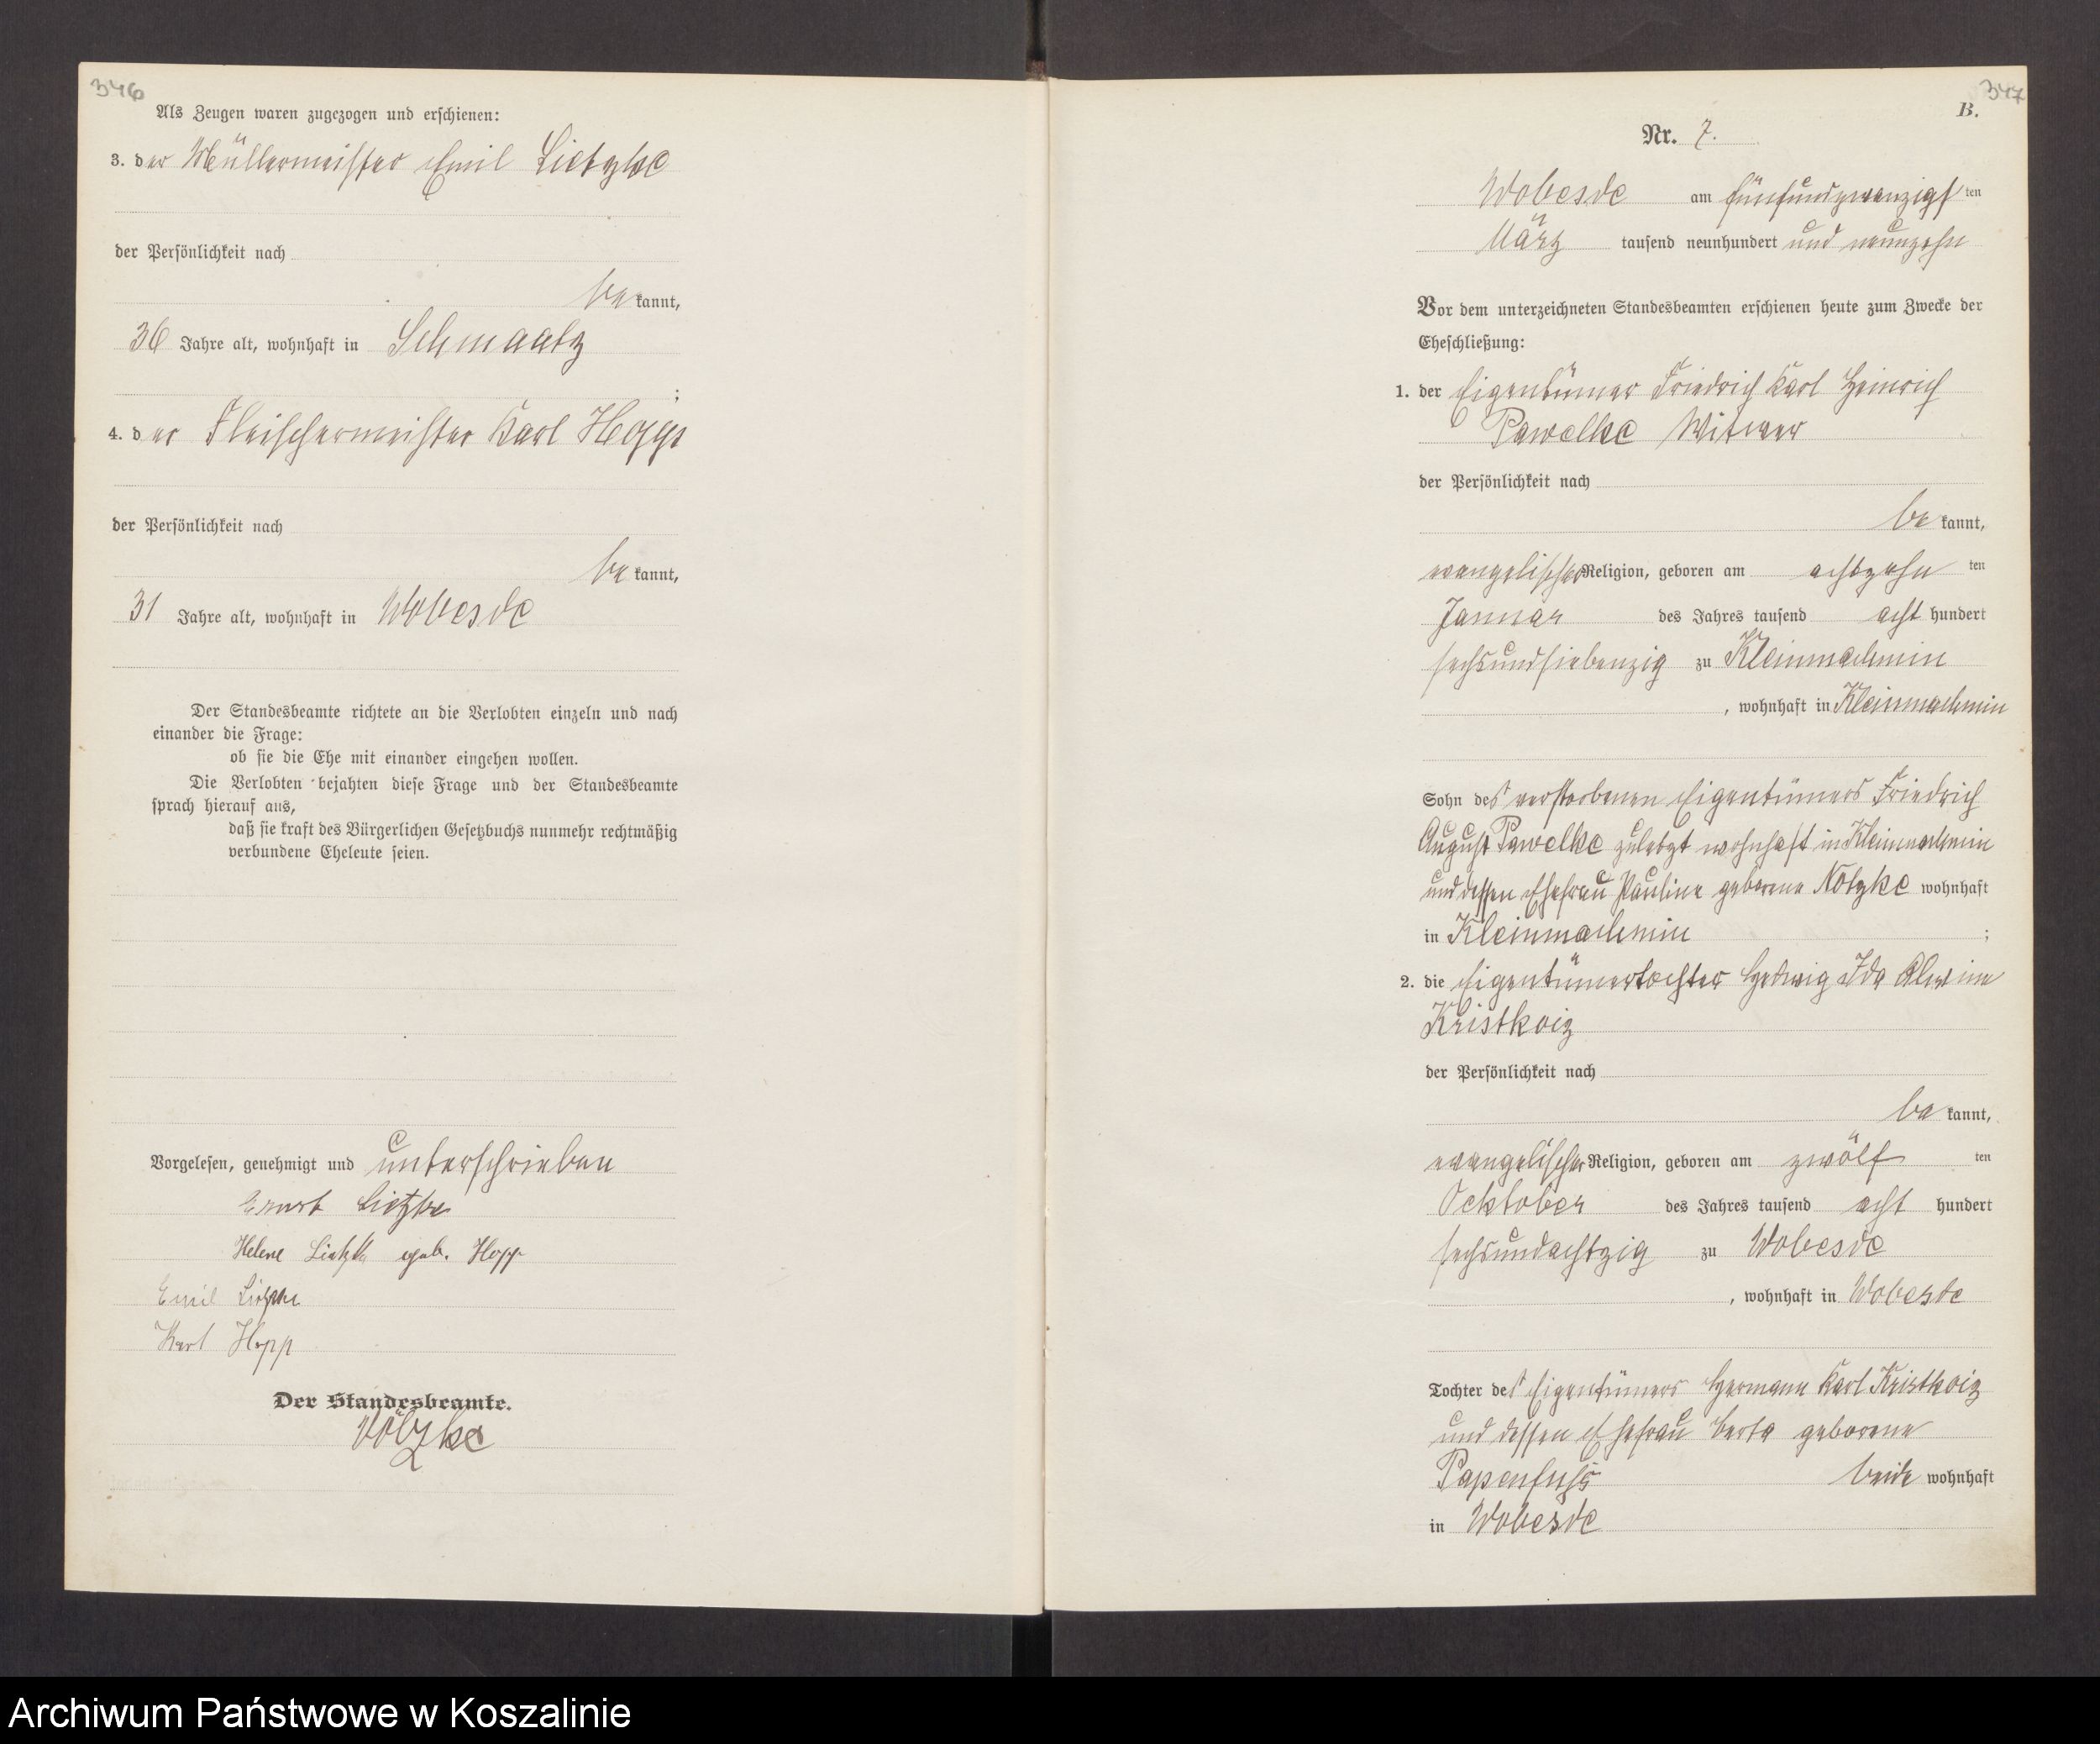 346
Als Zeugen waren zugezogen und erschienen:
3. der Müllermeister Emil Lietzke
der Persönlichkeit nach
be kannt,
36 Jahre alt, wohnhaft in Schmaatz
;
4. der Fleischermeister Karl Hopp
der Persönlichkeit nach
be kannt,
31 Jahre alt, wohnhaft in Wobesde
Der Standesbeamte richtete an die Verlobten einzeln und nach
einander die Frage:
ob sie die Ehe mit einander eingehen wollen.
Die Verlobten bejahten diese Frage und der Standesbeamte
sprach hierauf aus,
daß sie kraft des Bürgerlichen Gesetzbuchs nunmehr rechtmäßig
verbundene Eheleute seien.
Vorgelesen, genehmigt und unterschrieben
Ernst Lietzke
Helene Lietzke geb. Hopp
Emil Lietzke
Karl Hopp
Der Standesbeamte.
Völzke
347
B.
Nr. 7.
Wobesde am fünfundzwanzigs ten
März tausend neunhundert und neunzehn
Vor dem unterzeichneten Standesbeamten erschienen heute zum Zwecke der
Eheschließung:
1. der Eigentümer Friedrich Karl Heinrich
Pawelke Witwer
der Persönlichkeit nach
be kannt,
evangelischer Religion, geboren am achtzehn ten
Januar des Jahres tausend acht hundert
sechsundsiebenzig zu Kleinmachmin
, wohnhaft in Kleinmachmin
Sohn des verstorbenen Eigentümers Friedrich
August Pawelke zuletzt wohnhaft in Kleinmachmin
und dessen Ehefrau Pauline geborene Nötzke wohnhaft
in Kleinmachmin ;
2. die Eigentümertochter Hedwig Ida Alwine
Kristkoiz
der Persönlichkeit nach
be kannt,
evangelischer Religion, geboren am zwölf ten
Ocktober des Jahres tausend acht hundert
sechsundachtzig zu Wobesde
, wohnhaft in Wobesde
Tochter des Eigentümers Hermann Karl Kristkoiz
und dessen Ehefrau Berta geborene
Papenfuß beide wohnhaft
in Wobesde
Archiwum Państwowe w Koszalinie